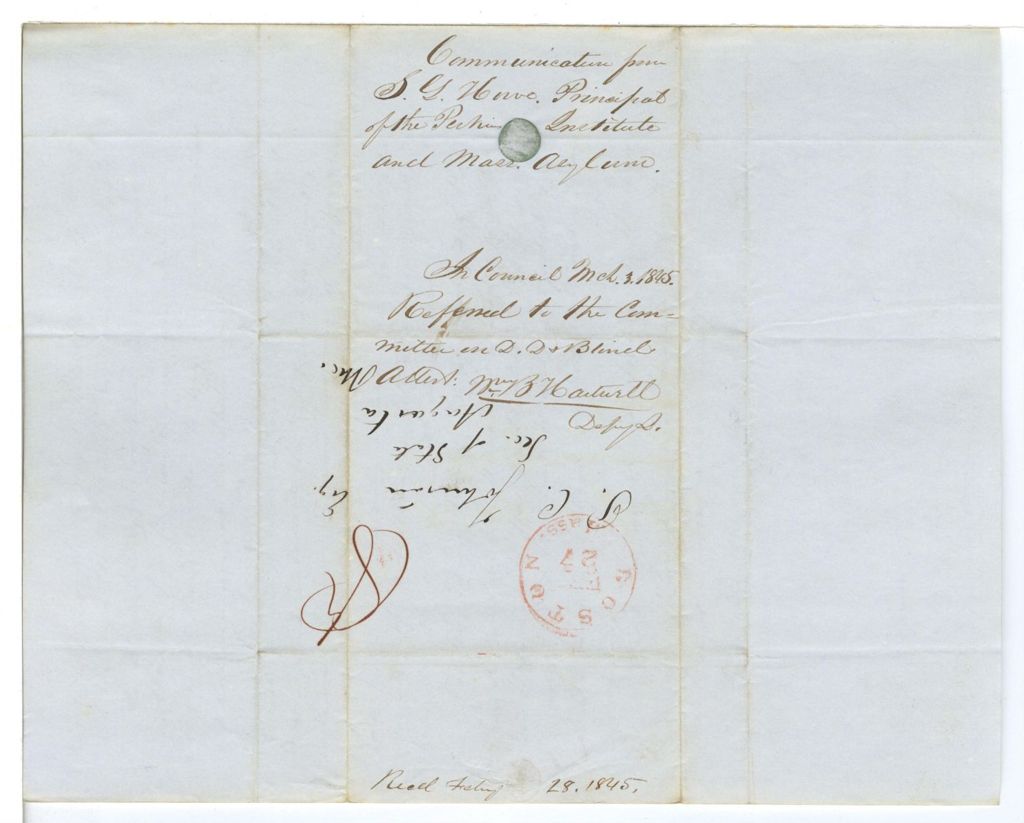 Communication from
S. G. Howe. Principal
of the Perkins Institute
and Mass. Asylum.
In Council Mch. 3. 1845.
Refferred to the Com=
mittee on D. D & Blind
Attest: Wm B Hartwell
Depy S.
P. C. Johnson Esq.
Sec. of State
Augusta
Me.
BOSTON
MASS.
27
Recd Feby 28. 1845.